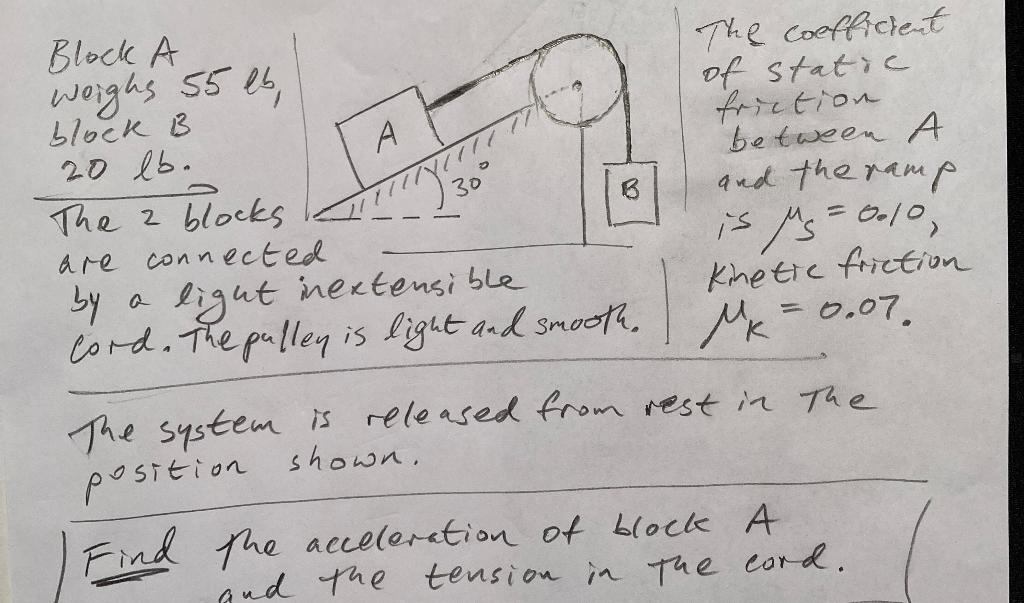 Block A
weighs 55 lb,
block B
20 lb.
The 2 blocks
are connected
by a light inextensible
cord. The pulley is light and smooth.
A
30°
B
The coefficient
of static
friction
between A
and the ramp
is μs = 0.10,
Kinetic friction
μK = 0.07.
The system is released from rest in The
position shown.
Find The acceleration of block A
and the tension in The cord.